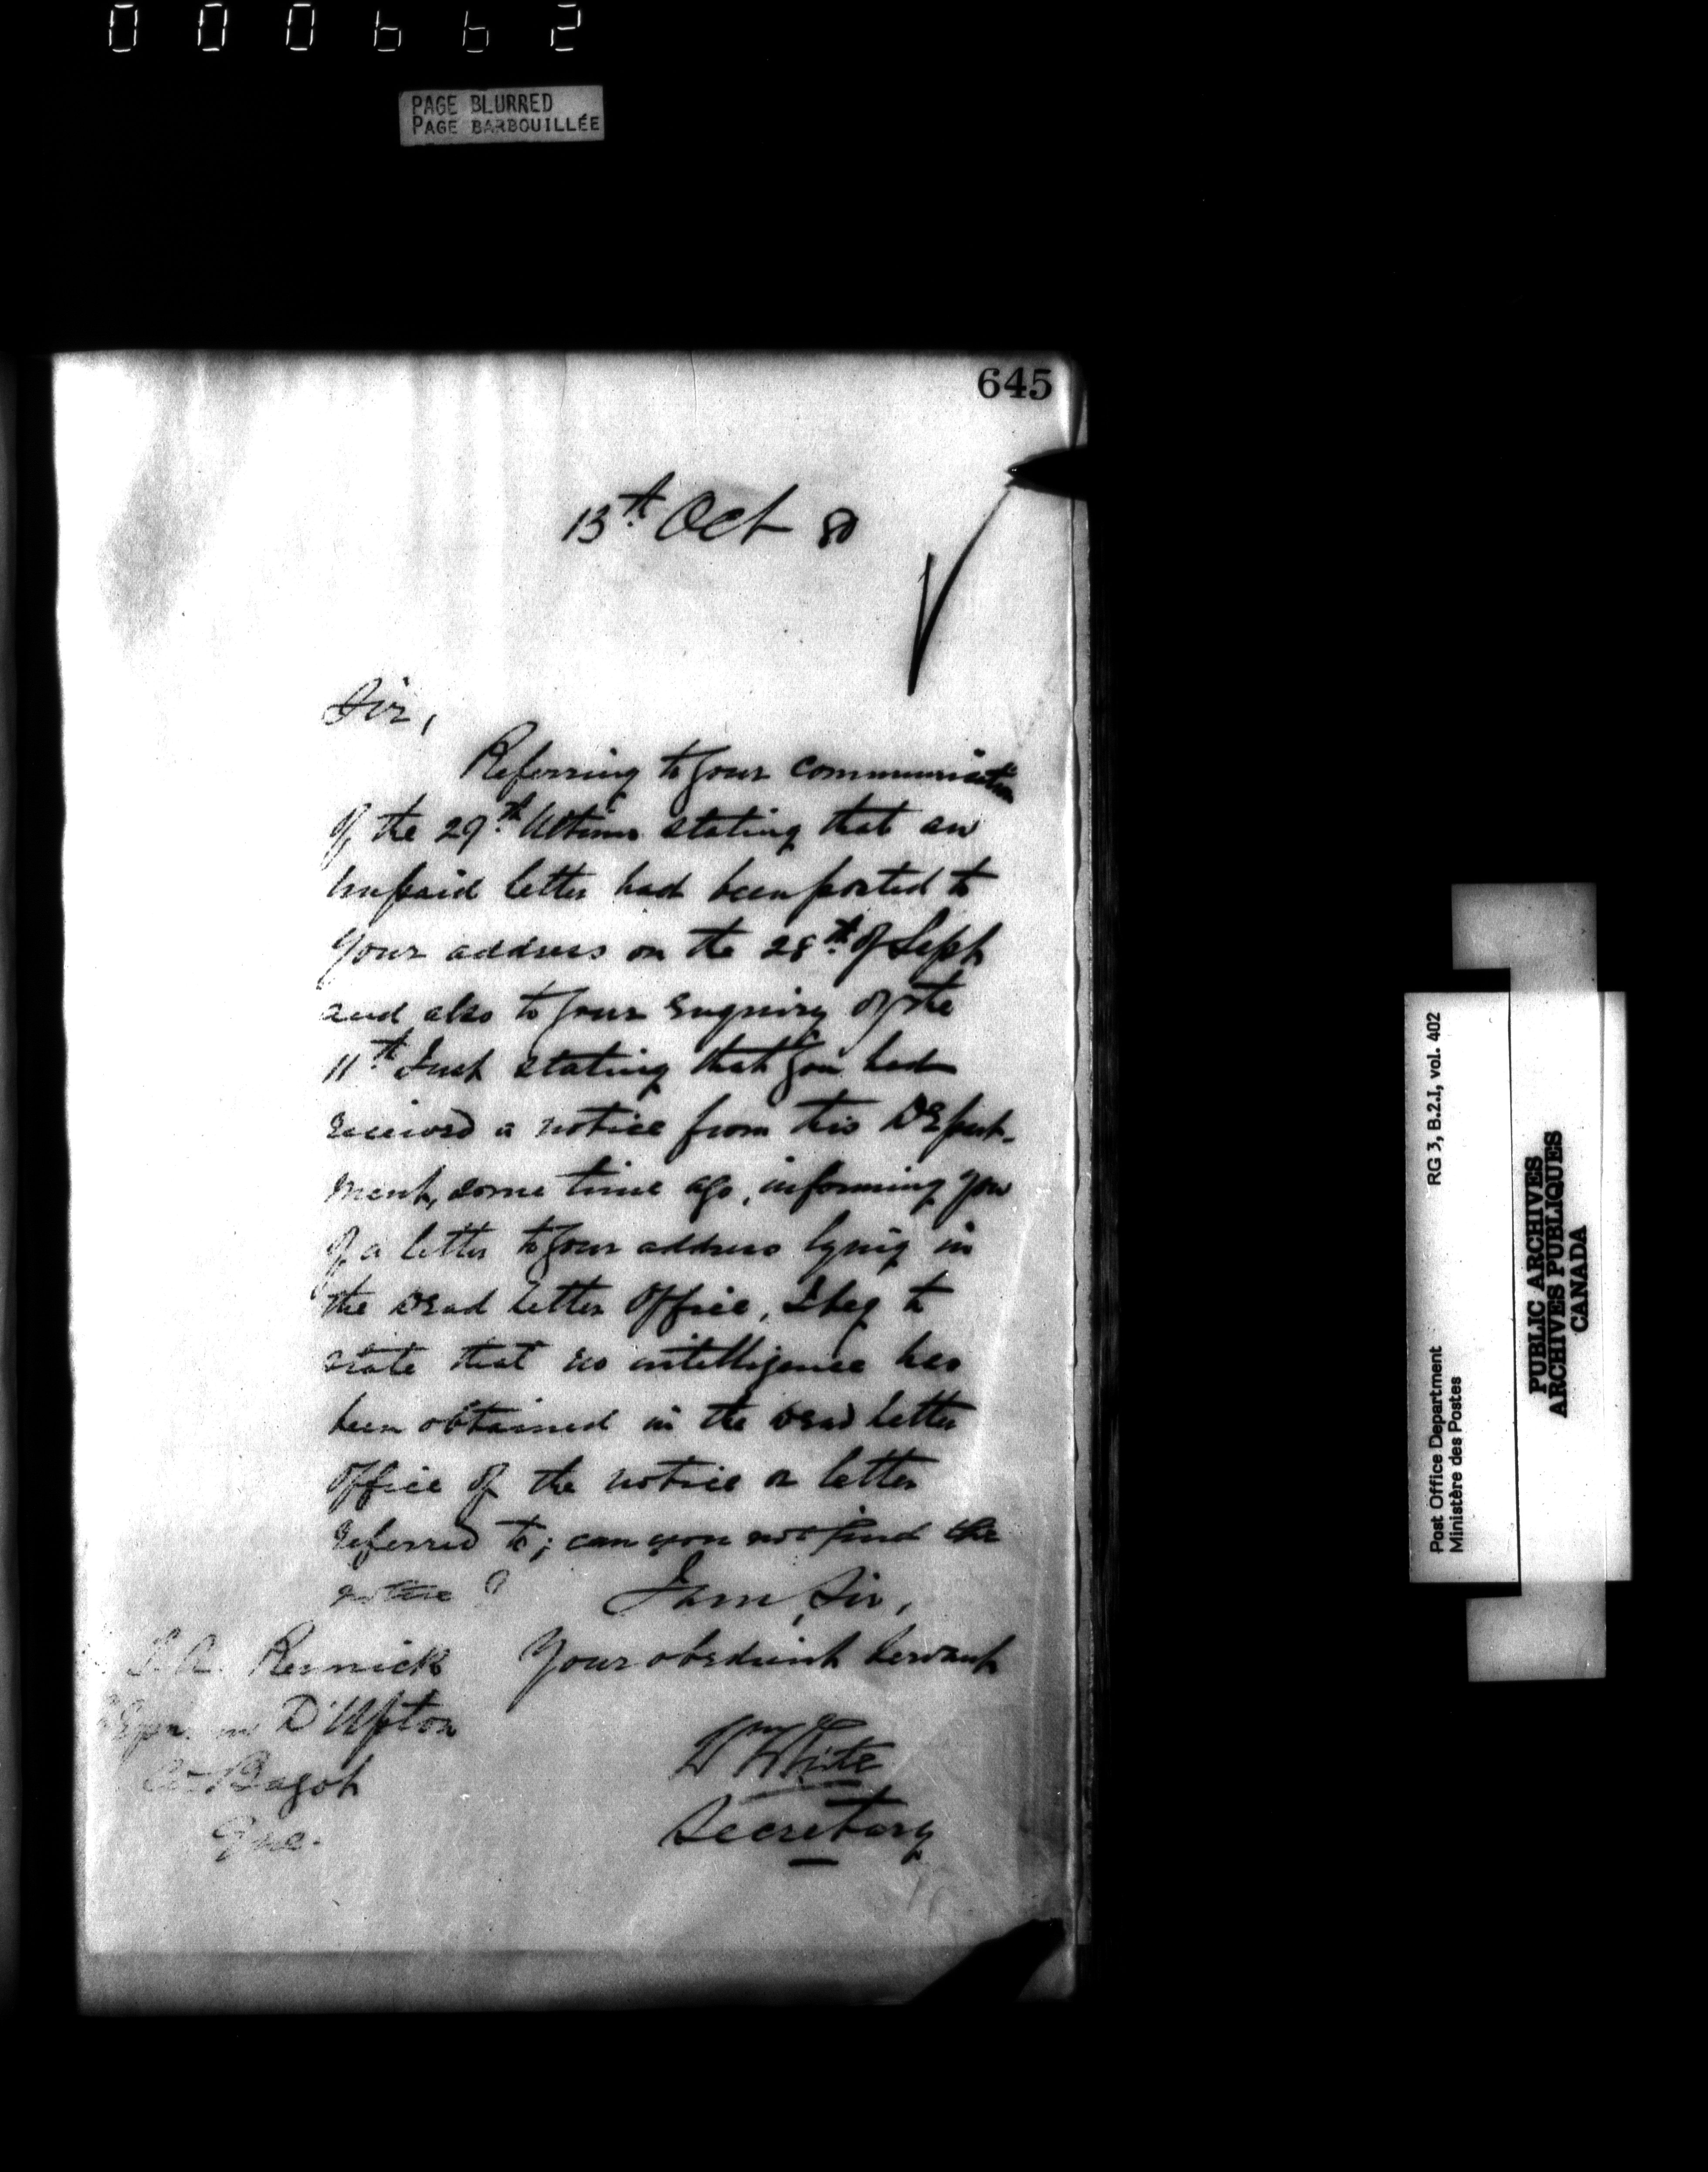 000662
PAGE BLURRED
PAGE BARBOUILLÉE
645
13th Oct 80
Sir,
Referring to your communication
of the 29th Ultimo stating that an
unpaid letter had been posted to
your address on the 28th of Sept
and also to your Enquiry of the
11th Inst stating that you had
received a notice from this Depart-
ment, some time ago, informing you
of a letter to your address lying in
the Dead Letter Office, I beg to
state that no intelligence has
been obtained in the Dead Letter
Office of the notice or letter
referred to; can you not find the
notice?
I am, Sir,
Your obedient Servant
Wm White
Secretary
Resnick
D'Upton
Co Bagot
Que.
Post Office Department RG 3, B.2.I, vol. 402
Ministère des Postes
PUBLIC ARCHIVES
ARCHIVES PUBLIQUES
CANADA